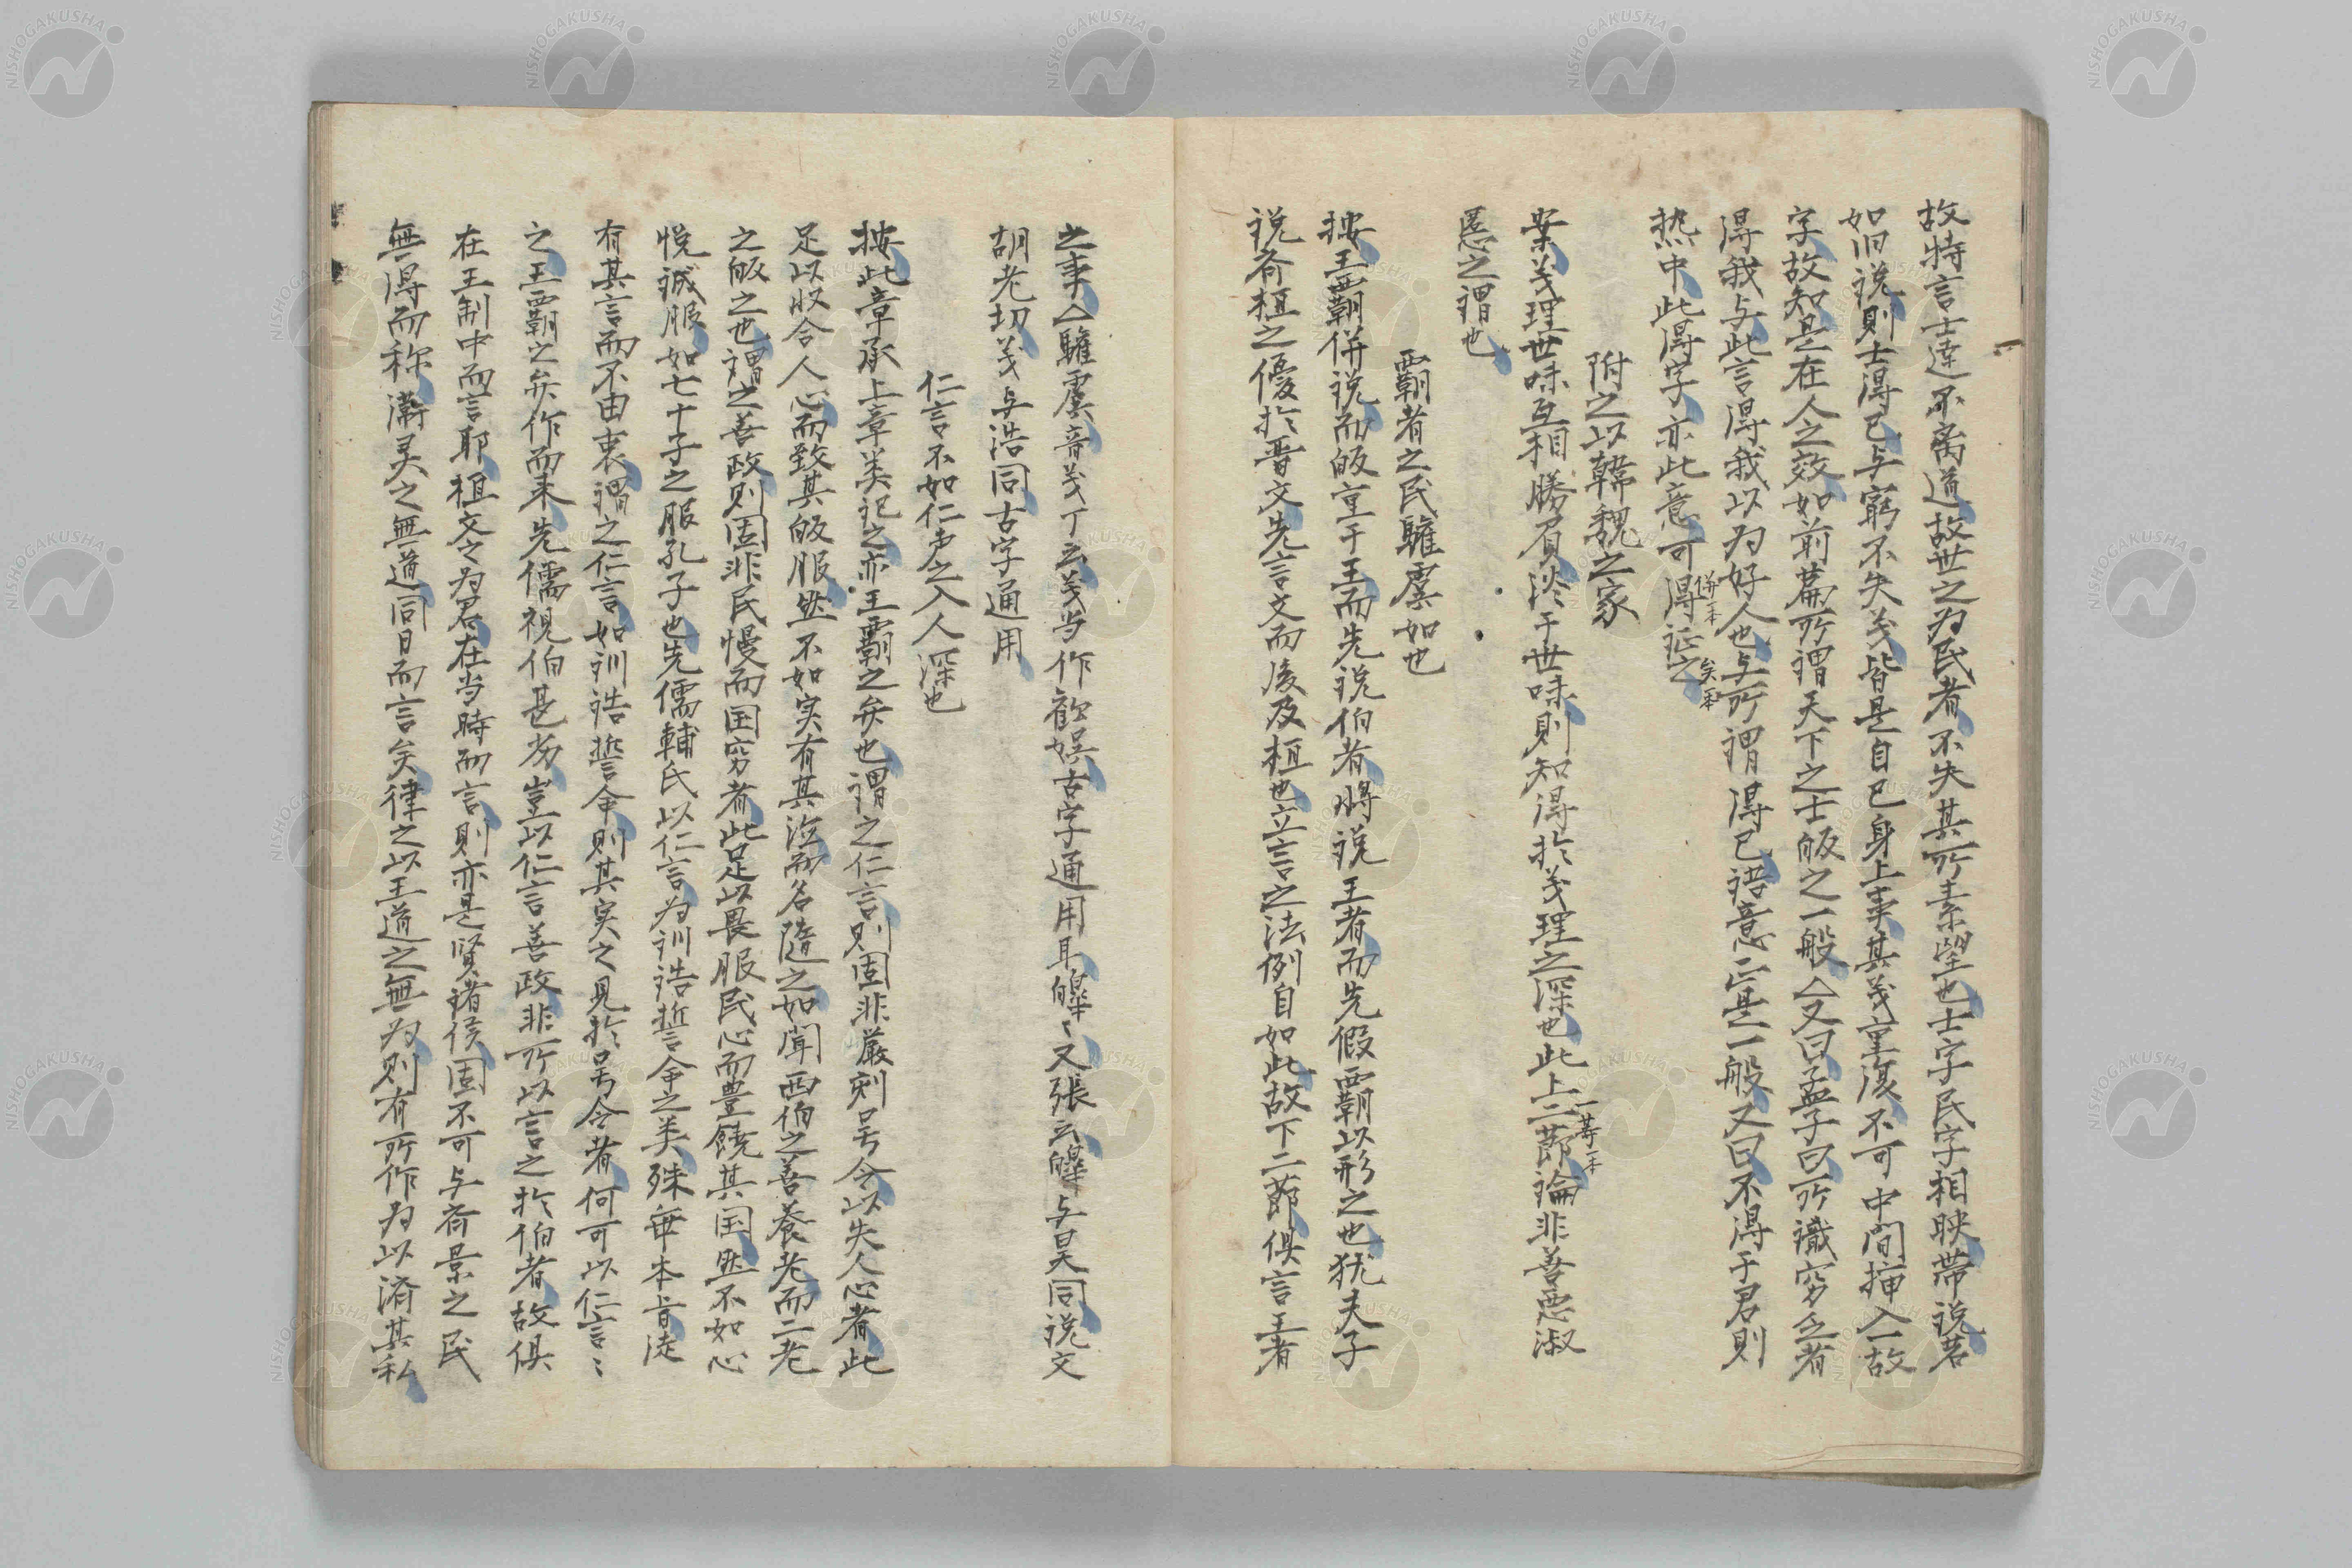 故特言士達不离道故世之为民者不失其所素望也士字民字相映帶说若
如旧说則士得已与窮不失义皆是自已身上事其义重復不可中間揷入一故
字故知是在人之效如前篇所謂天下之士皈之一般△又曰孟子曰所識窮乏者
得我与此言得我以为好人也与所謂得已语意正是一般又曰不得于君則
热中此得字亦此意可得证之
併一本
矣一本
附之以韓魏之家
案义理世味互相勝負淡于世味則知得於义理之深也此上二節論非善悪淑
一等一本
慝之謂也
霸者之民驩虞如也
按王霸併说而皈重于王而先说伯者将说王者而先假霸以形之也犹夫子
说斉桓之優於晋文先言文而後及桓也立言之法例自如此故下二節俱言王者
之事△驩虞音义丁云义当作歡娯古字通用耳皥〻又張云皥与昊同说文
胡老切义与浩同古字通用
仁言不如仁声之入人深也
按此章承上章类记之亦王霸之弁也謂之仁言則固非厳刻号令以失人心者此
足以収合人心而致其皈服然不如实有其泣而名隨之如聞西伯之善養老而二老
之皈之也謂之善政則固非民慢而国穷者此足以畏服民心而豊饒其国然不如心
悦诚服如七十子之服孔子也先儒輔氏以仁言为训诰誓命之类殊毎本旨徒
有其言而不由衷謂之仁言如训诰誓命則其实之見於号令者何可以仁言〻
之王霸之弁作而来先儒視伯甚劣豈以仁言善政非所以言之於伯者故俱
在王制中而言耶桓文之为君在当時而言則亦是贤诸侯固不可与斉景之民
無得而称衛灵之無道同日而言矣律之以王道之無为則有所作为以済其私